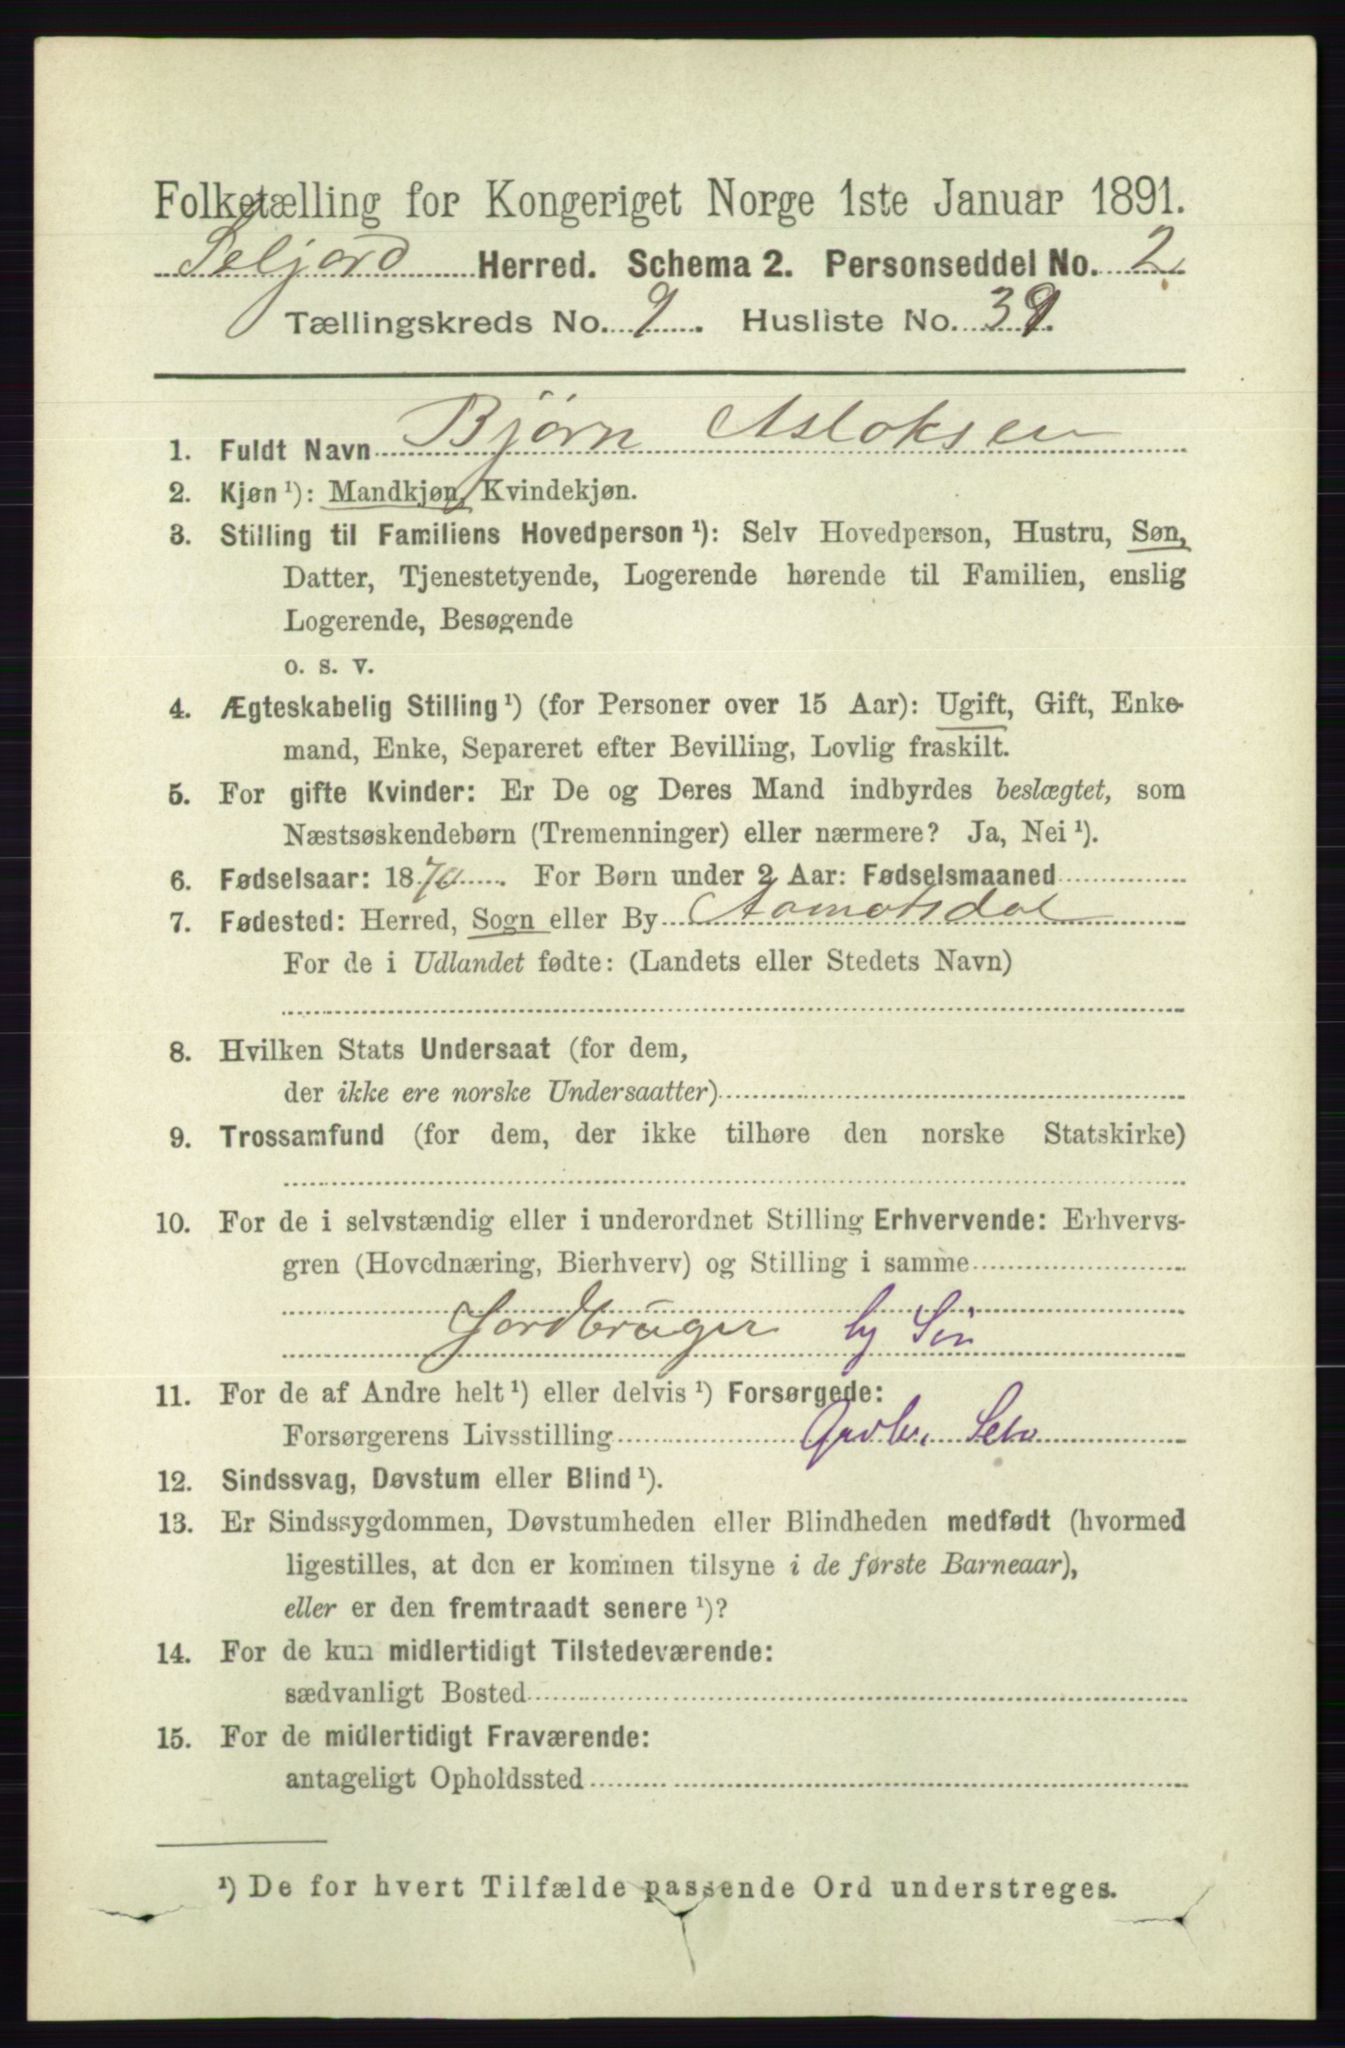 Folketælling for Kongeriget Norge 1ste Januar 1891.
Seljord Herred. Schema 2. Personseddel No. 2
Tællingskreds No. 9. Husliste No. 39.
1. Fuldt Navn Bjørn Asloksen
2. Kjøn ¹): Mandkjøn, Kvindekjøn.
3. Stilling til Familiens Hovedperson ¹): Selv Hovedperson, Hustru, Søn,
Datter, Tjenestetyende, Logerende hørende til Familien, enslig
Logerende, Besøgende
o. s. v.
4. Ægteskabelig Stilling ¹) (for Personer over 15 Aar): Ugift, Gift, Enke-
mand, Enke, Separeret efter Bevilling, Lovlig fraskilt.
5. For gifte Kvinder: Er De og Deres Mand indbyrdes beslægtet, som
Næstsøskendebørn (Tremenninger) eller nærmere? Ja, Nei ¹).
6. Fødselsaar: 1870. For Børn under 2 Aar: Fødselsmaaned
7. Fødested: Herred, Sogn eller By Aamotsdal
For de i Udlandet fødte: (Landets eller Stedets Navn)
8. Hvilken Stats Undersaat (for dem,
der ikke ere norske Undersaatter)
9. Trossamfund (for dem, der ikke tilhøre den norske Statskirke)
10. For de i selvstændig eller i underordnet Stilling Erhvervende: Erhvervs-
gren (Hovednæring, Bierhverv) og Stilling i samme
Jordbruger hj Søn
11. For de af Andre helt ¹) eller delvis ¹) Forsørgede:
Forsørgerens Livsstilling Gaardbr. Selv
12. Sindssvag, Døvstum eller Blind ¹).
13. Er Sindssygdommen, Døvstumheden eller Blindheden medfødt (hvormed
ligestilles, at den er kommen tilsyne i de første Barneaar),
eller er den fremtraadt senere ¹)?
14. For de kun midlertidigt Tilstedeværende:
sædvanligt Bosted
15. For de midlertidigt Fraværende:
antageligt Opholdssted
¹) De for hvert Tilfælde passende Ord understreges.